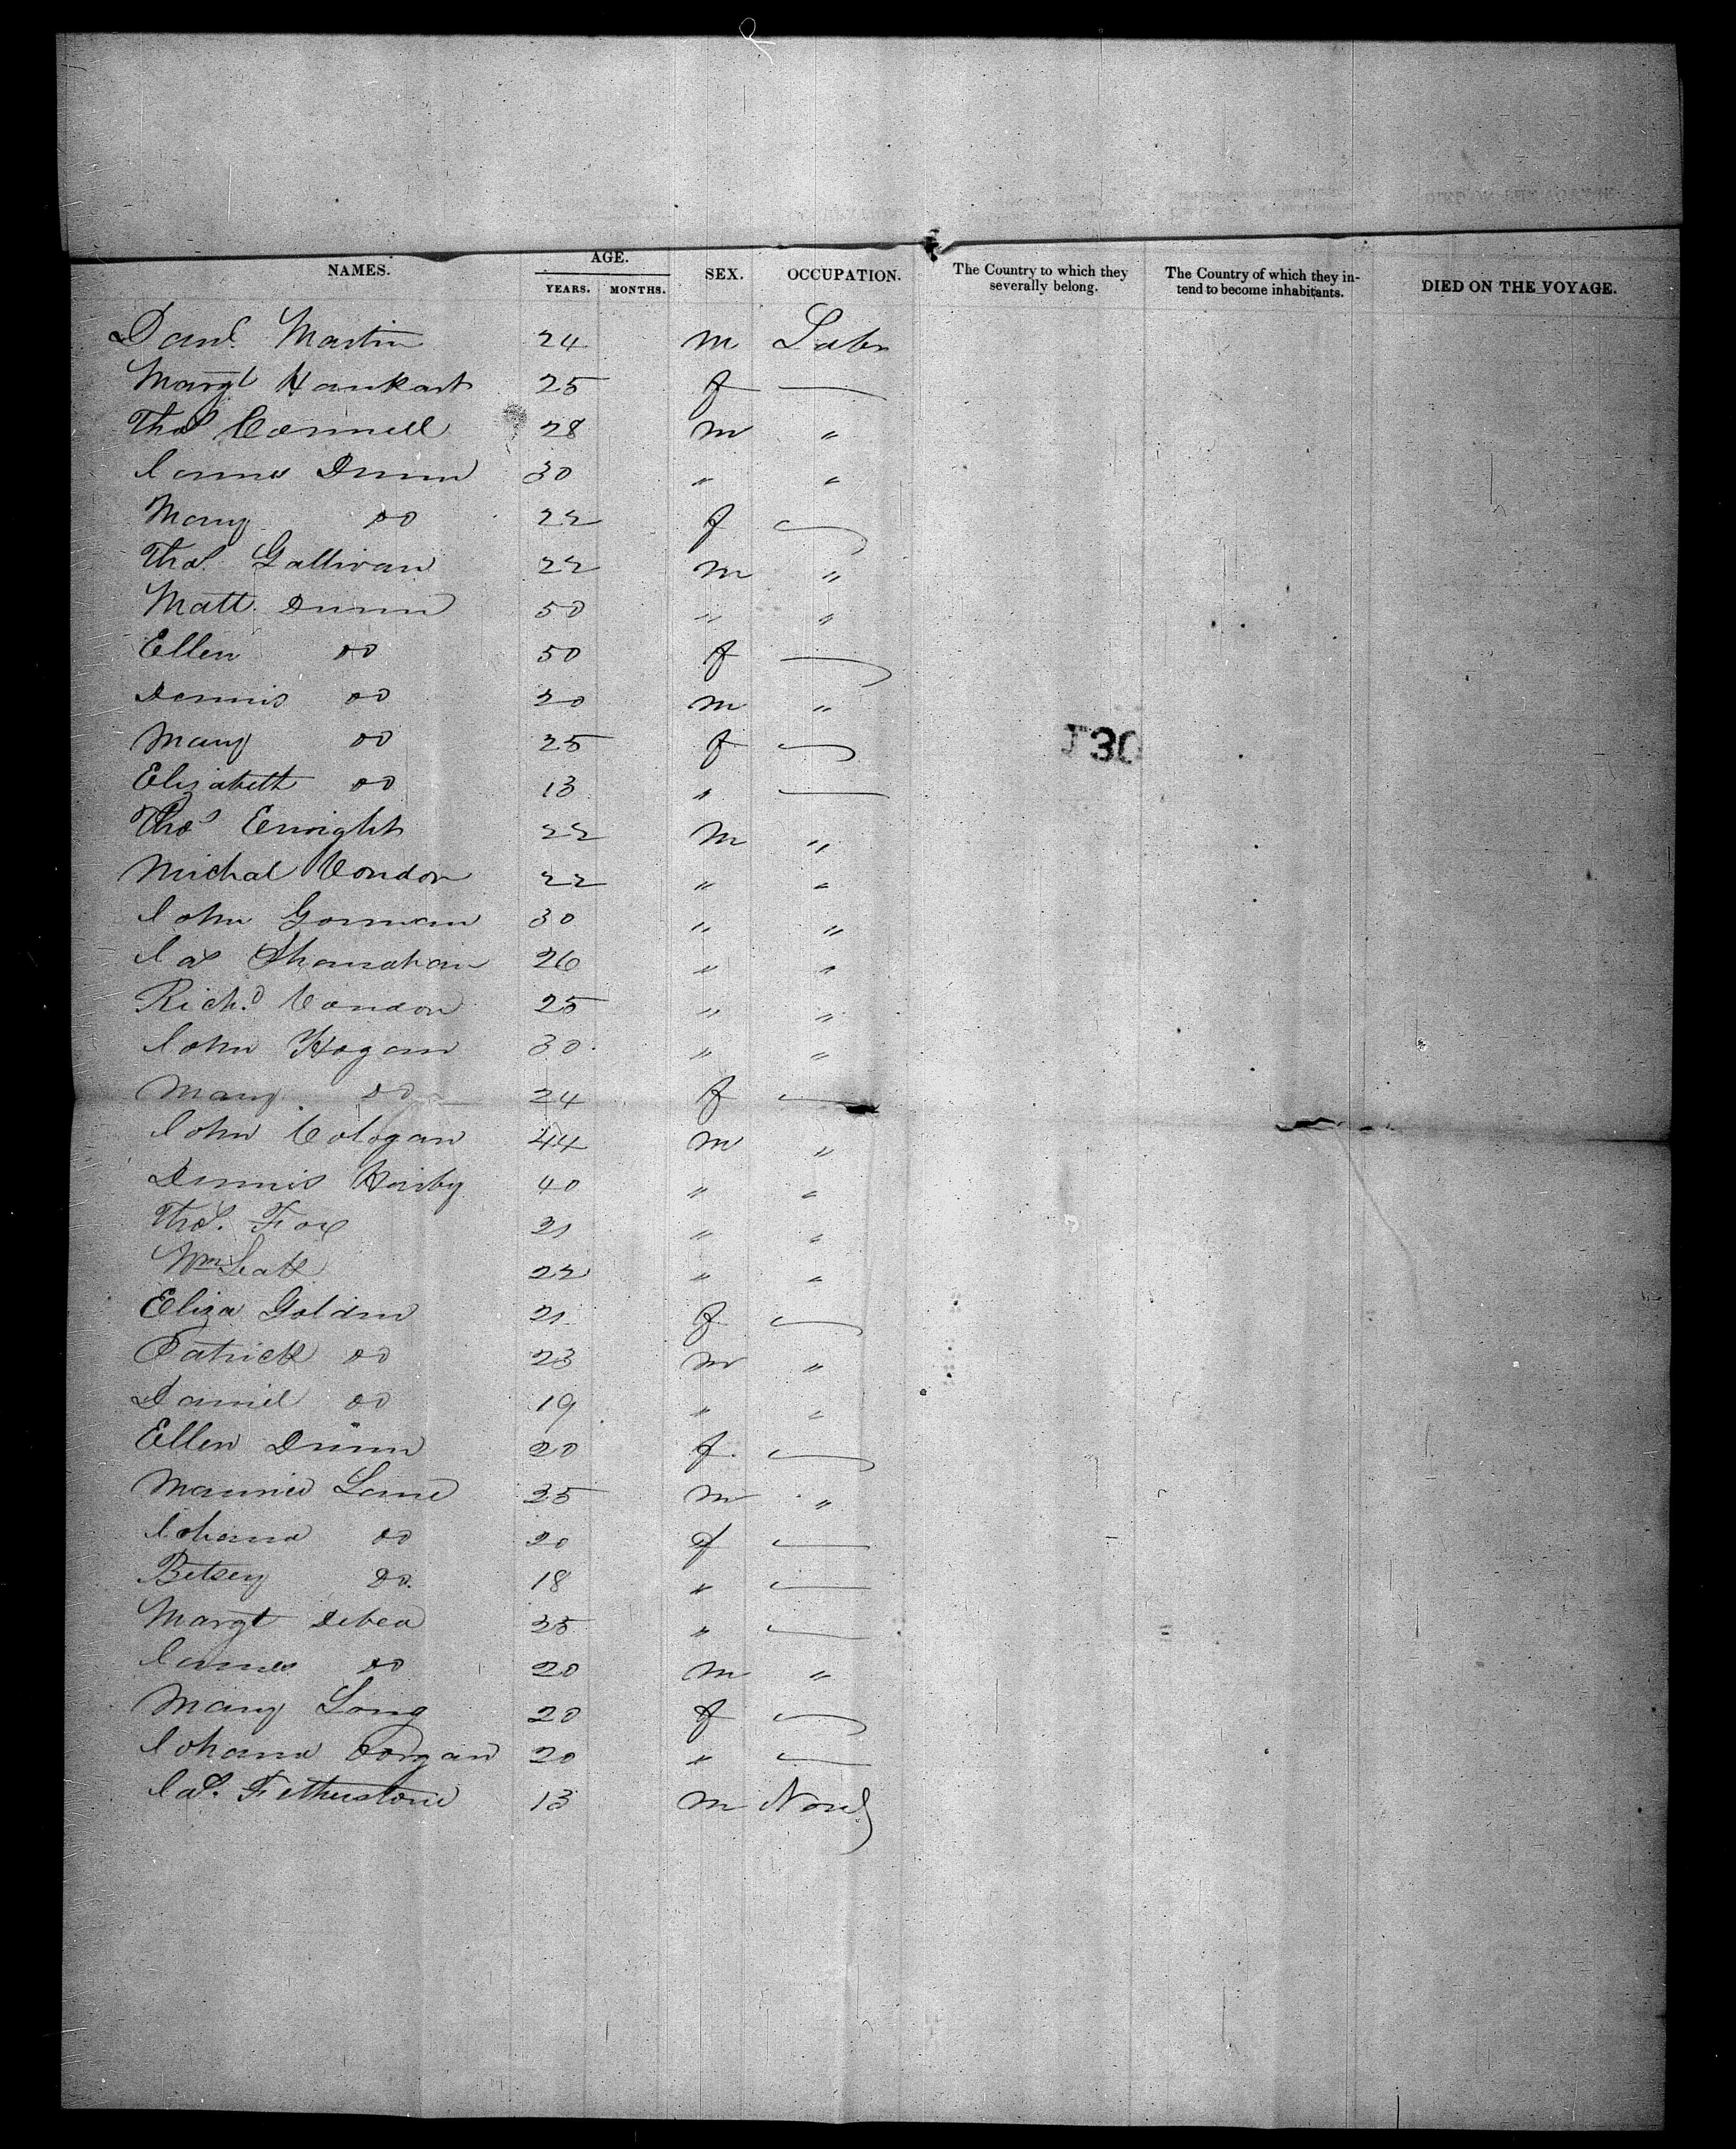 NAMES. AGE. YEARS. MONTHS. SEX. OCCUPATION. The Country to which they severally belong. The Country of which they intend to become inhabitants. DIED ON THE VOYAGE.
Danl. Martin 24 m Labr
Margt Hankart 25 f —
Thos Connell 28 m "
James Dunn 30 " "
Mary do 22 f —
Thos. Gallivan 22 m "
Matt. Dunn 50 " "
Ellen do 50 f —
Dennis do 20 m "
Mary do 25 f —
Elizabeth do 13 " —
Thos Enright 22 m "
Michal Condon 22 " "
John Gorman 30 " "
Jas Shanahan 26 " "
Richd. Condon 25 " "
John Hogan 30 " "
Mary do 24 f —
John Cologan 44 m "
Dennis Kirby 40 " "
Thos. Fox 21 " "
Wm 22 " "
Eliza Golden 21 f —
Patrick do 23 m "
Daniel do 19 " "
Ellen Dunn 20 f —
Maurice Lane 25 m "
Johana do 20 f —
Betsey Do. 18 " —
Margt 25 " —
James do 20 m "
Mary Long 20 f —
Johana Dorgan 20 " —
Jas. Fetherstone 13 m None